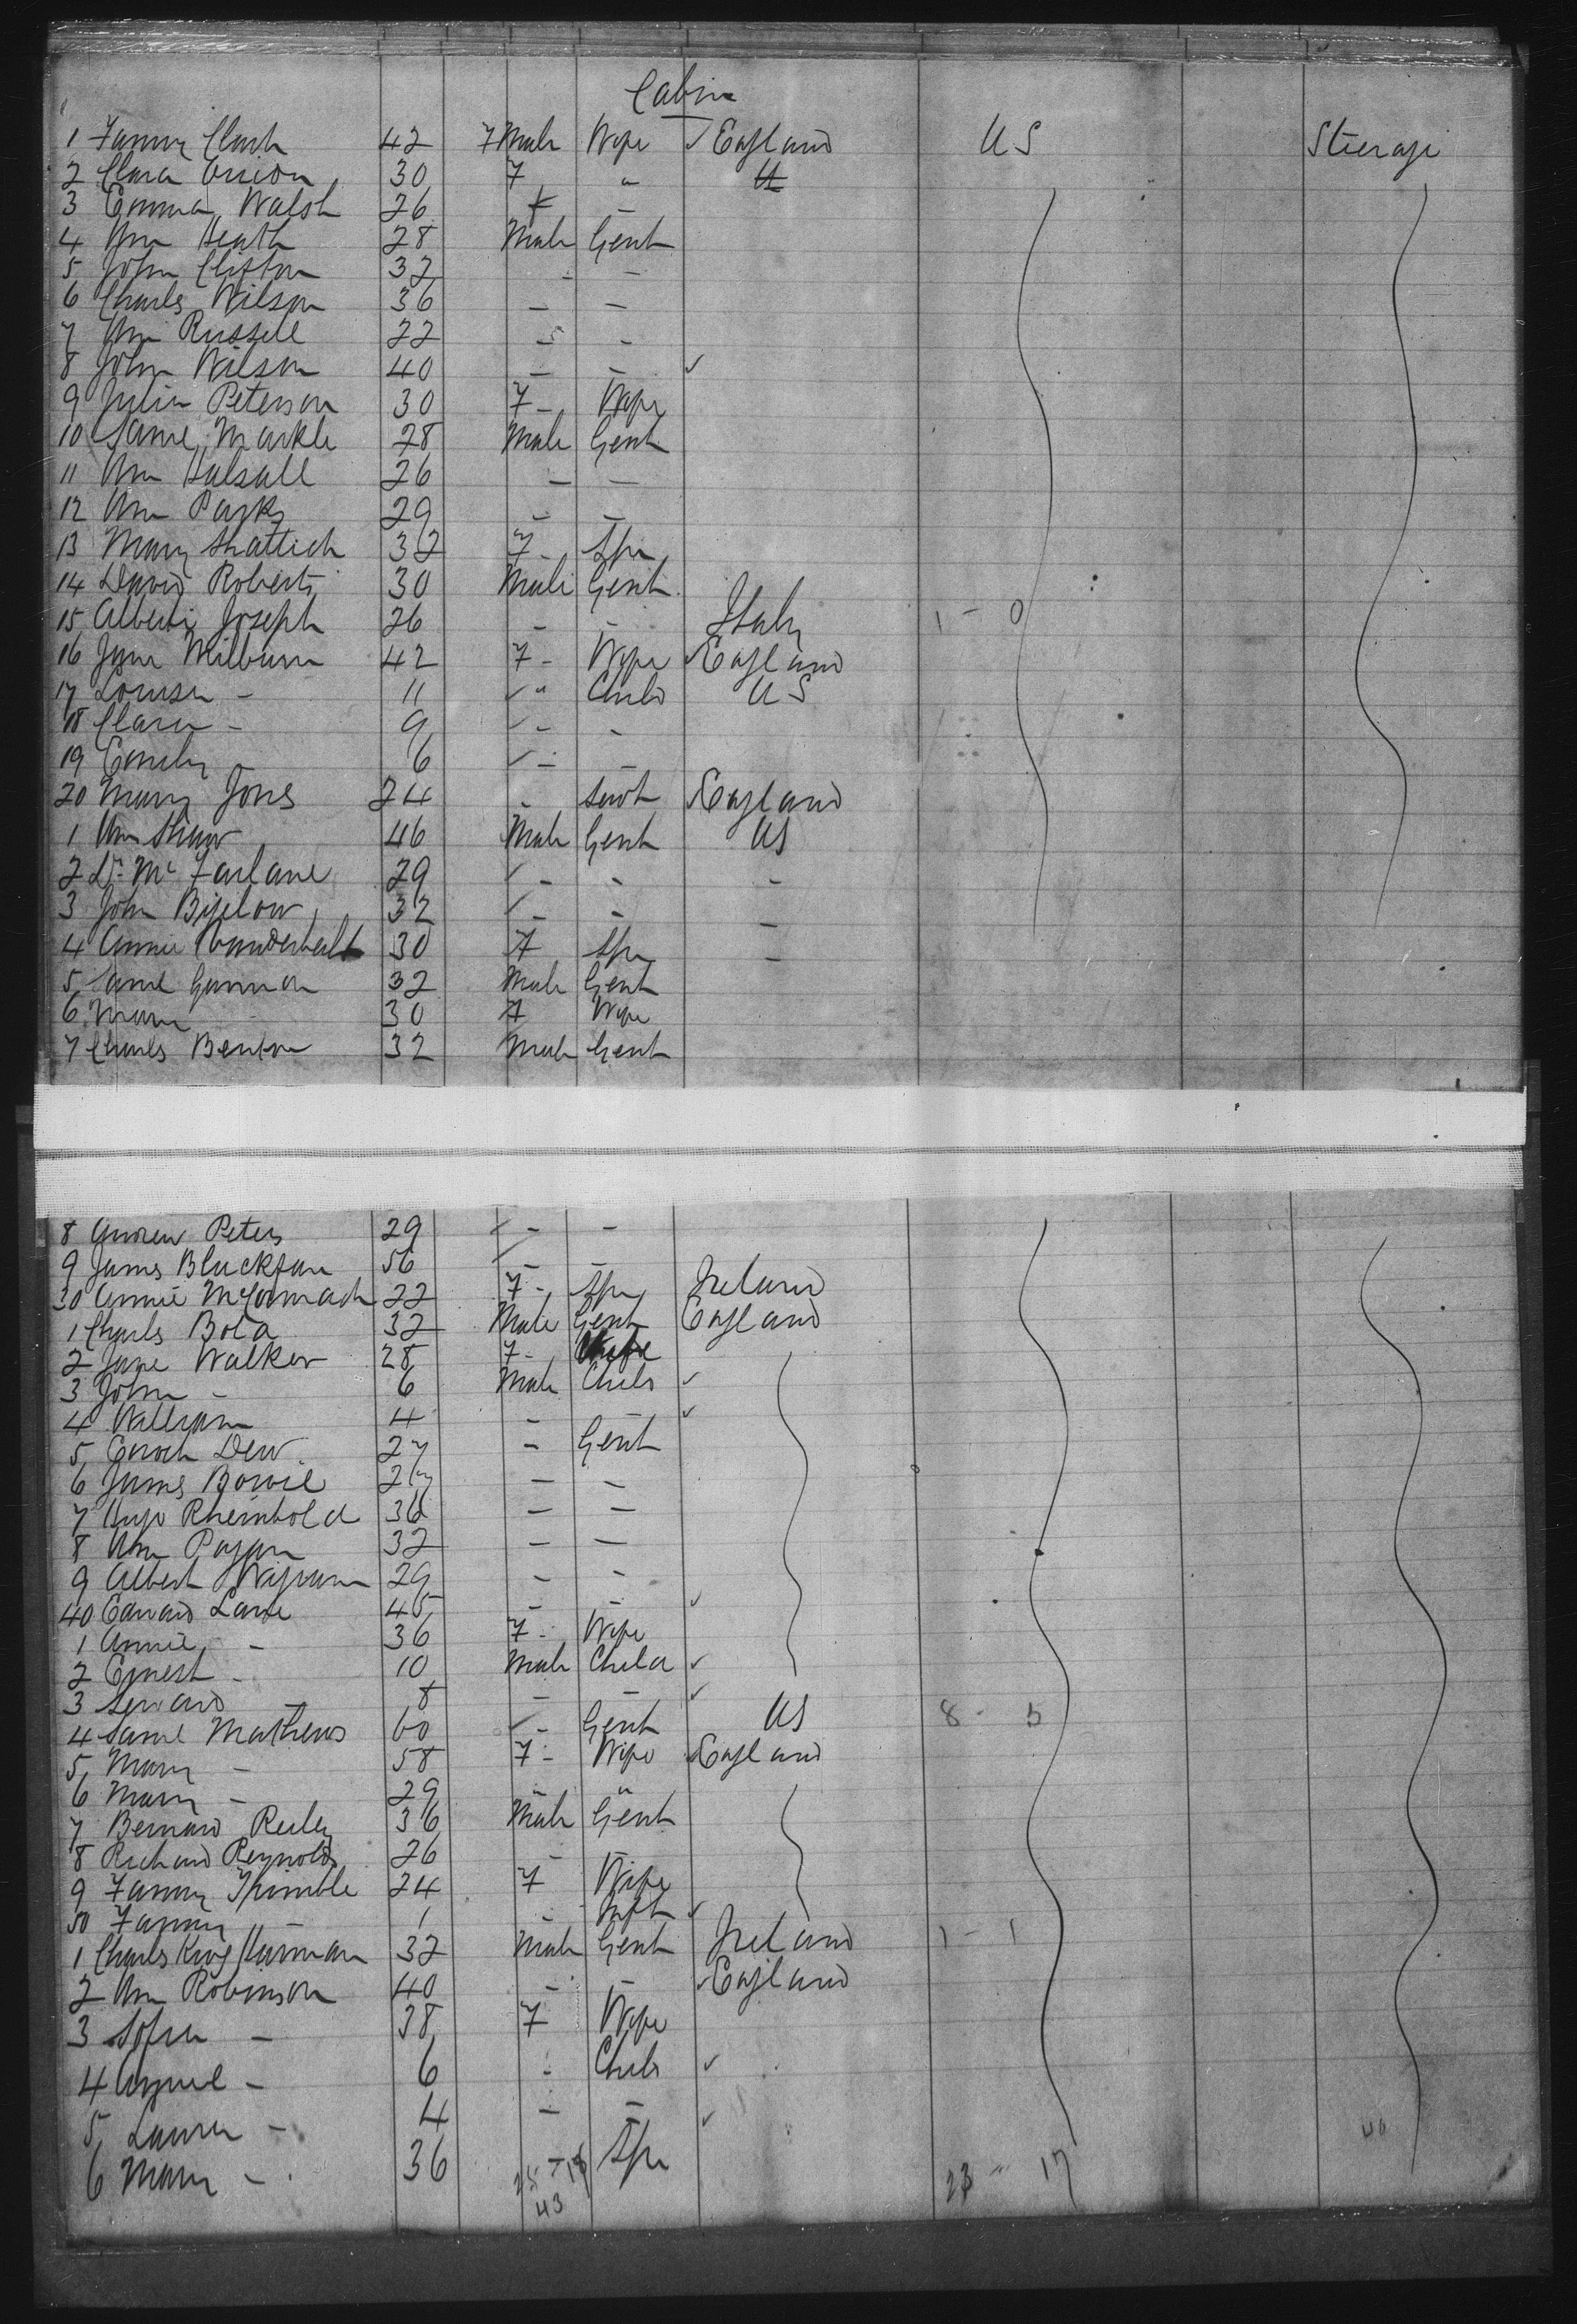 Cabin
1 Fanny Clark 42 Female Wife ✓ England US Steerage
2 Clara Onion 30 F " U
3 Emma Walsh 26 F -
4 Wm Heath 28 Male Gent
5 John Clifton 32 - -
6 Charles Wilson 36 - -
7 Wm Russell 22 - -
8 John Wilson 40 - - ✓
9 Julia Peterson 30 F - Wife
10 Saml Markle 28 Male Gent
11 Wm Halsall 26 - -
12 Wm Parks 29 - -
13 Mary 32 F - Spr
14 David Roberts 30 Male Gent
15 Alberti Joseph 26 - - Italy 1 - 0
16 Jane Milburn 42 F - Wife ✓ England
17 Louisa - 11 " Child US
18 Clara - 9 - -
19 Emily - 6 - -
20 Mary Jones 24 - Servt England
1 Wm Shaw 46 Male Gent US
2 Dr. Mc Farlane 29 - - -
3 John Bigelow 32 - - -
4 Annie Vanderbilt 30 F Spr -
5 Saml Gannon 32 Male Gent
6 Mary 30 F Wife
7 Charles Benton 32 Male Gent
8 Andrew Peters 29 - -
9 James Blackfan 56 - -
30 Annie McCormack 22 F - Spr Ireland
1 Charles Bota 32 Male Gent England
2 Jane Walker 28 F - Wife
3 John - 6 Male Child ✓
4 William 4 - ✓
5 Enoch Dew 27 - Gent
6 James Bowie 27 - -
7 Hugo Rheinbold 36 - -
8 Wm Pagan 32 - -
9 Albert Wigram 29 - -
40 Edward Lane 45 - - ✓
1 Annie - 36 F - Wife
2 Ernest - 10 Male Child ✓
3 - 8 - - ✓
4 Saml Mathews 60 - Gent US 8 - 5
5 Mary - 58 F - Wife England
6 Mary - 29 " "
7 Bernard Reiley 36 Male Gent
8 Richard Reynolds 26 -
9 Fanny Trimble 24 F Wife
50 Fanny - 1 - Inft ✓
1 Charles King Harman 32 Male Gent Ireland 1 - 1
2 Wm Robinson 40 - - ✓ England
3 Sofia - 38 F Wife
4 - 6 - Child ✓
5 Laura - 4 - - ✓ 40
6 Mary - 36 - Spr
25 - 18 23 - 17
43